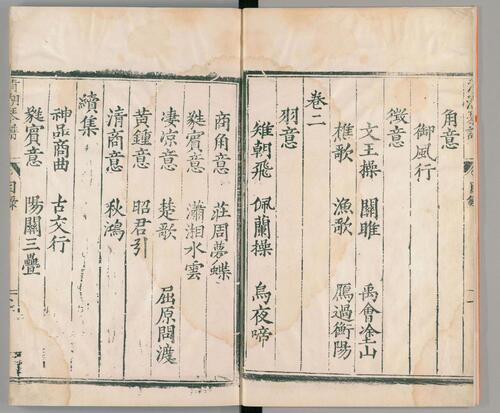 角意
御風行
徵意
文王操 關雎 禹會塗山
樵歌 漁歌 鴈過衡陽
卷二
羽意
雉朝飛 佩蘭操 烏夜啼
商角意 莊周夢蝶
蕤賓意 瀟湘水雲
凄凉意 楚歌 屈原問渡
黃鍾意 昭君引
清商意 秋鴻
續集
神品商曲 古交行
蕤賓意 陽關三疊
琴譜
目錄